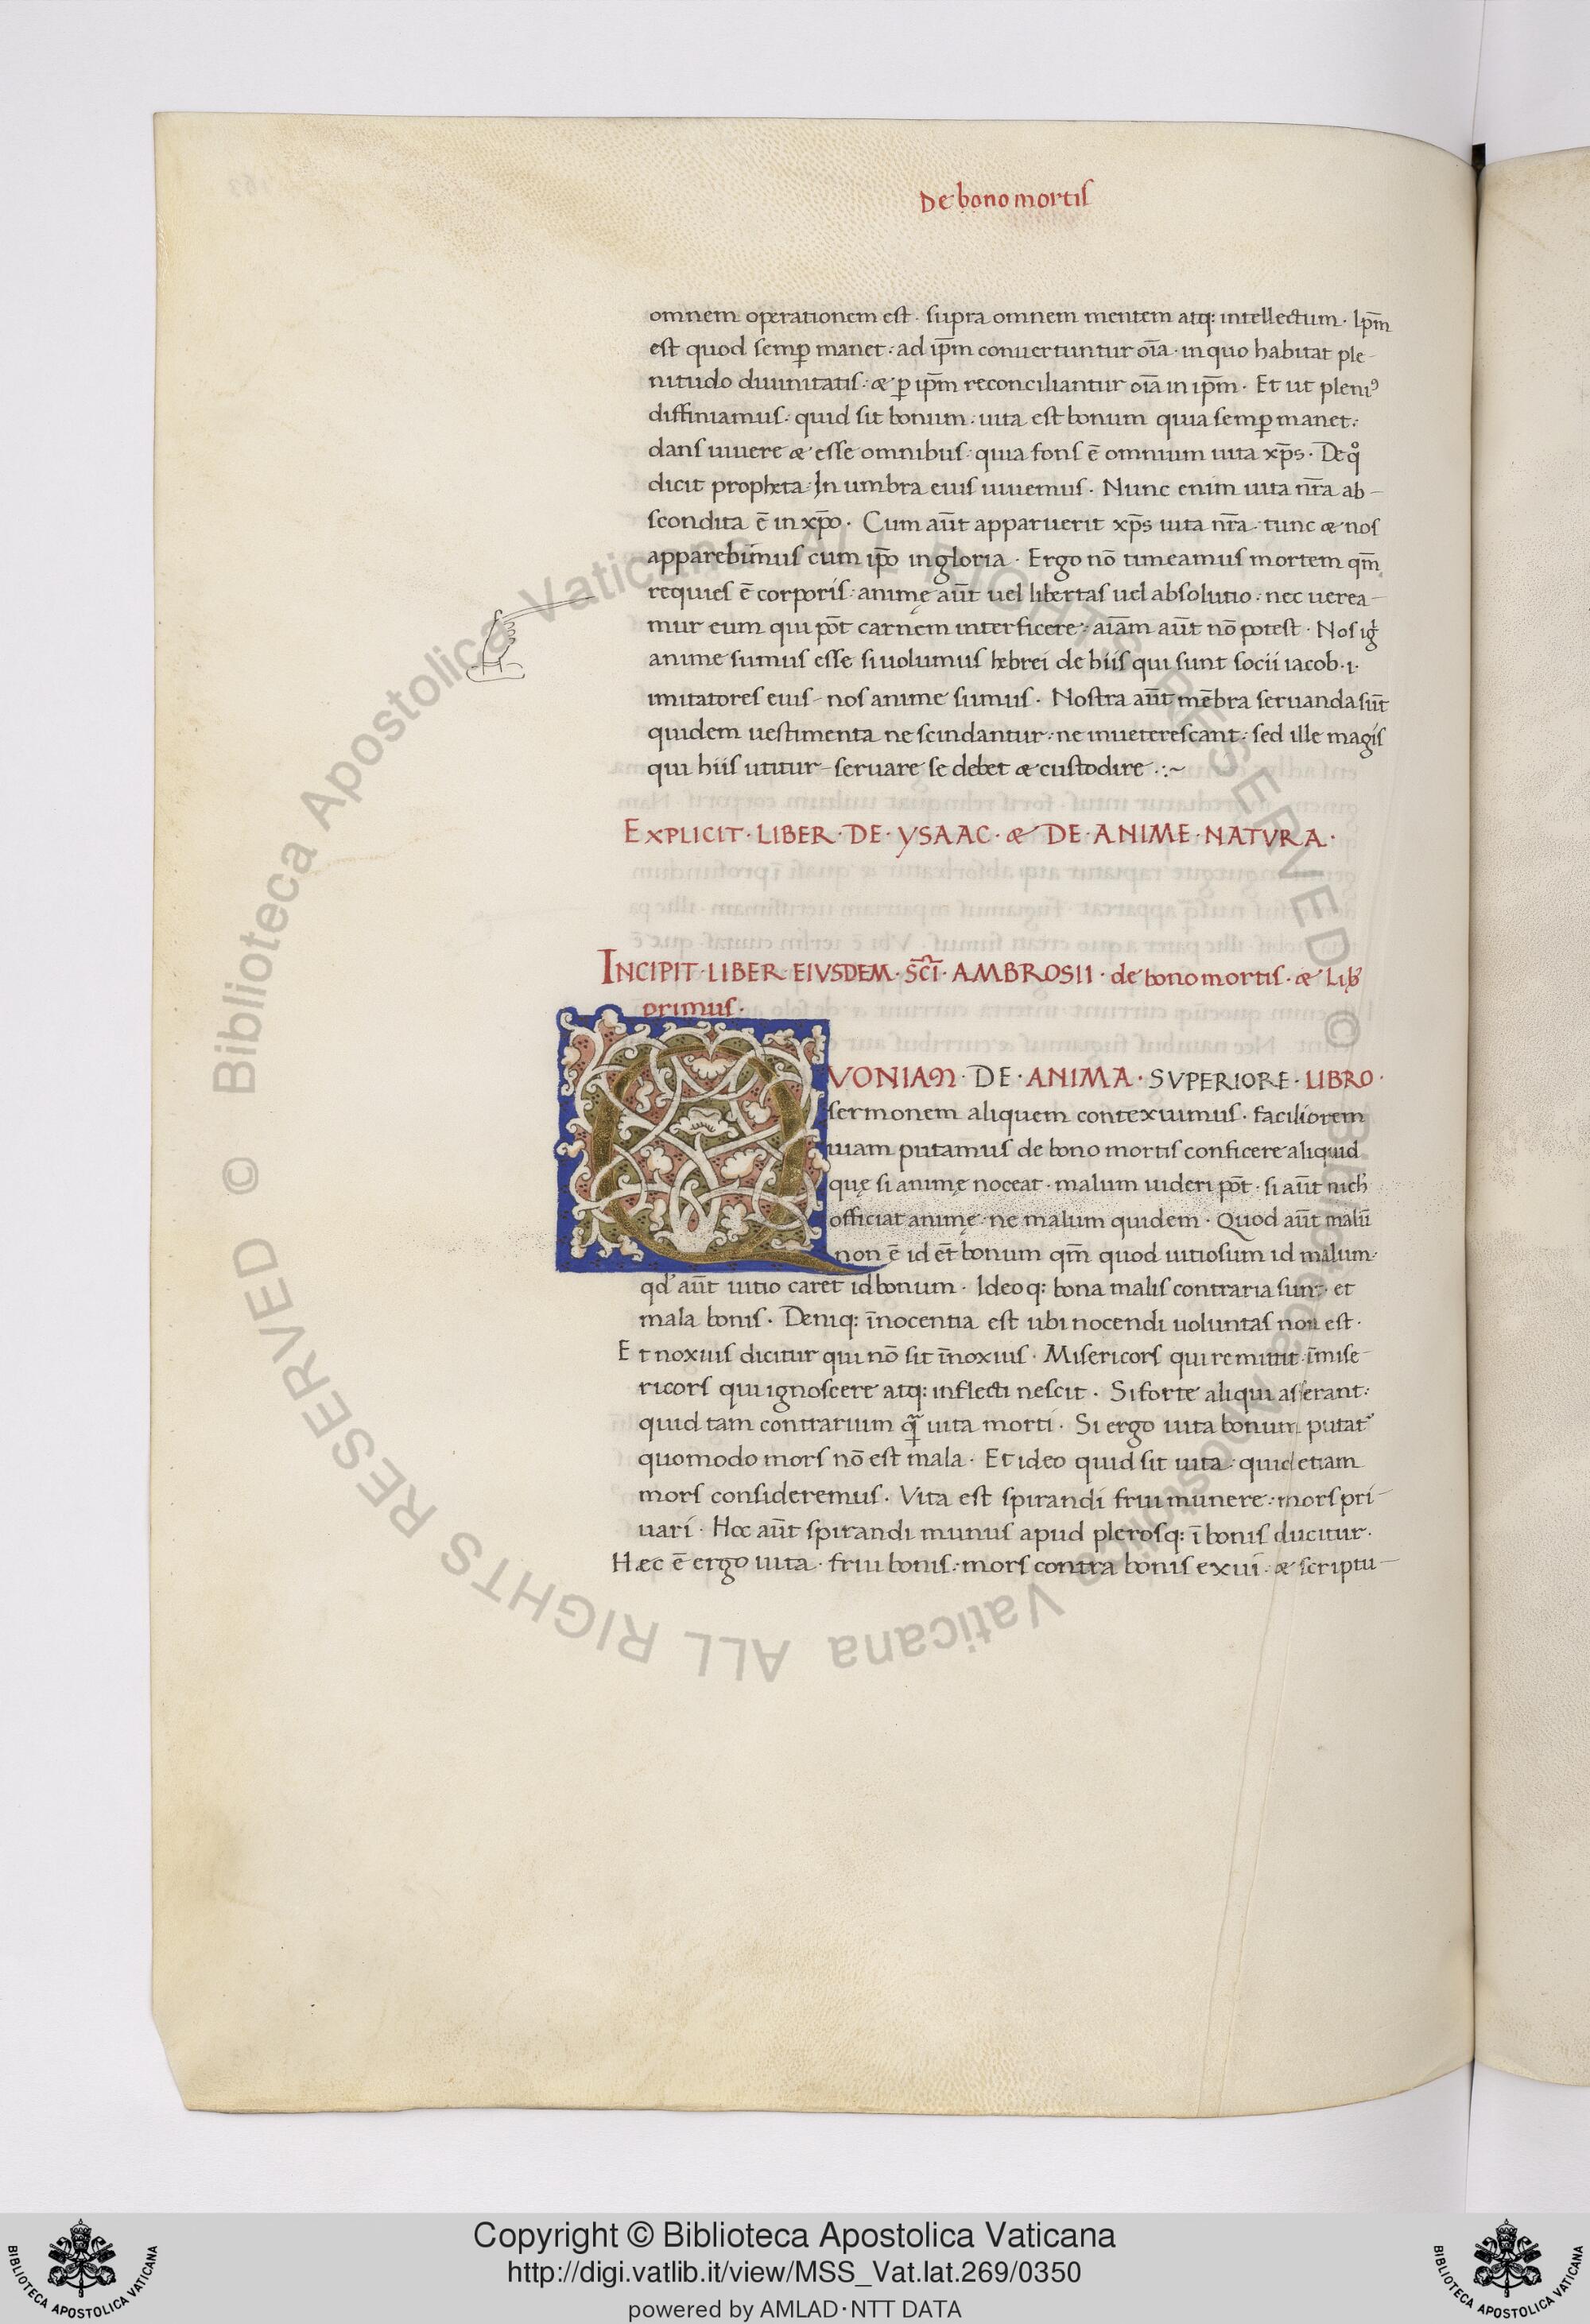 De bono mortis
omnem operationem est· supra omnem mentem atq: intellectum· Ip̄m
est quod semꝑ manet: ad ip̄m conuertuntur oīa· in quo habitat ple-
nitudo diuinitatis: æ ꝑ ip̄m reconciliantur oīa in ip̄m· Et ut pleniꝰ
diffiniamus: quid sit bonum: uita est bonum quia semꝑ manet:
dans uiuere æ esse omnibus: quia fons ē omnium uita xp̄s· De qͦ
dicit propheta: In umbra eius uiuemus· Nunc enim uita nr̄a ab-
scondita ē in xp̄o· Cum aūt apparuerit xp̄s uita nr̄a: tunc æ nos
apparebimus cum ip̄o in gloria· Ergo nō timeamus mortem qm̄
requies ē corporis: animę aūt uel libertas uel absolutio: nec uerea-
mur eum qui pōt carnem interficere: aīam aūt nō potest· Nos igͥ
anime sumus esse si uolumus hebrei de hiis qui sunt socii iacob·i·
imitatores eius- nos anime sumus· Nostra aūt mēbra seruanda sūt
quidem uestimenta ne scindantur: ne inueterescant: sed ille magis
qui hiis utitur- seruare se debet æ custodire·:~
EXPLICIT·LIBER·DE·YSAAC·æ DE·ANIME·NATVRA·
INCIPIT·LIBER·EIVSDEM·SC̄I·AMBROSII·de bono mortis·æ Lib̕
primus·
QVONIAM·DE·ANIMA·SVPERIORE·LIBRO·
sermonem aliquem contexuimus· faciliorem
uiam putamus de bono mortis conficere aliquid
quę si animę noceat· malum uideri pōt· si aūt nich̕
officiat animę· ne malum quidem· Quod aūt malū
non ē id ēt bonum qm̄ quod uitiosum id malum:
qd̕ aūt uitio caret id bonum· Ideoq: bona malis contraria sunt· et
mala bonis· Deniq: īnocentia est ubi nocendi uoluntas non est·
Et noxius dicitur qui nō sit īnoxius· Misericors qui remittit: īmise-
ricors qui ignoscere atq: inflecti nescit· Si forte aliqui asserant:
quid tam contrarium qᷓ uita morti· Si ergo uita bonum putat᷑
quomodo mors nō est mala· Et ideo quid sit uita: quid etiam
mors consideremus· Vita est spirandi frui munere: mors pri-
uari· Hoc aūt spirandi munus apud plerosq: ī bonis ducitur·
Hæc ē ergo uita· frui bonis: mors contra bonis exui· æ scriptu-
© Biblioteca Apostolica Vaticana ALL RIGHTS RESERVED © Biblioteca Apostolica Vaticana ALL RIGHTS RESERVED
Copyright © Biblioteca Apostolica Vaticana
http://digi.vatlib.it/view/MSS_Vat.lat.269/0350
powered by AMLAD·NTT DATA
BIBLIOTECA APOSTOLICA VATICANA
BIBLIOTECA APOSTOLICA VATICANA